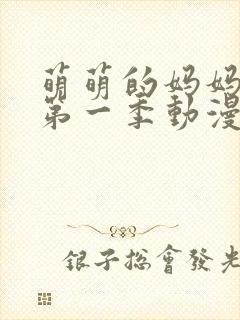 萌萌的妈妈
第一季動漫
银子总會發光